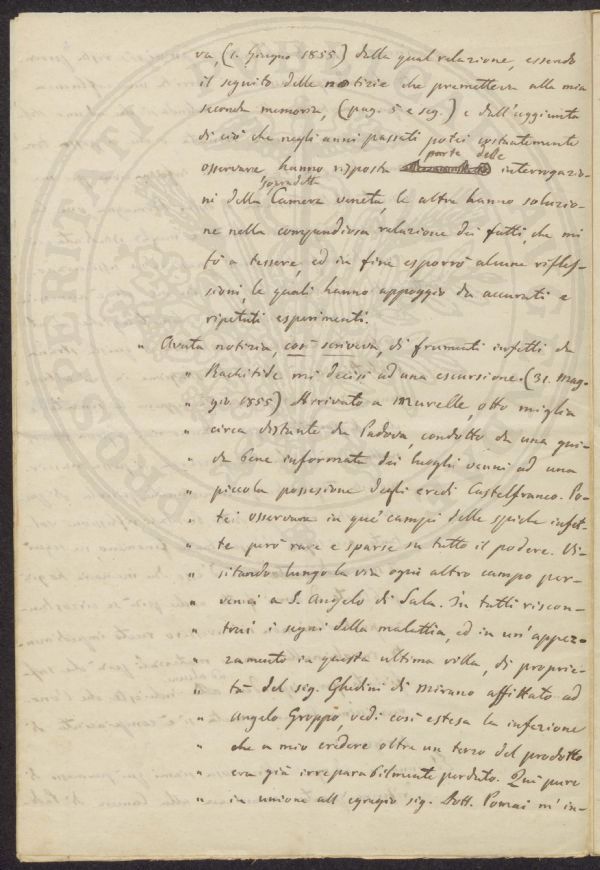 va, (1. Giugno 1855) dalla qual relazione, essendo
il seguito delle notizie che premetteva alla mia
seconda memoria, (pag. 5 e seg.) e dall'aggiunta
di ciò che negli anni passati potei costantemente
osservare, hanno risposta parte delle interrogazio-
ni della sopradetta Camera veneta, le altre hanno soluzio-
ne nella compendiosa relazione dei fatti, che mi
fò a tessere, ed in fine esporrò alcune rifles-
sioni, le quali hanno appoggio da accurati e
ripetuti esperimenti.
" Avuta notizia, così scriveva, di frumenti infetti da
" Rachitide mi decisi ad una escursione. (31. Mag-
" gio 1855) Arrivato a Murelle, otto miglia
" circa distante da Padova, condotto da una gui-
" da bene informata dei luoghi venni ad una
" piccola possesione degli eredi Castelfranco. Po-
" tei osservare in que' campi delle spiche infet-
" te però rare e sparse su tutto il podere. Vi-
" sitando lungo la via ogni altro campo per-
" venni a S. Angelo di Sala. In tutti riscon-
" trai i segni della malattia, ed in un' appez-
" zamento in questa ultima villa, di proprie-
" tà del sig. Ghedini di Mirano affittato ad
" Angelo Groppo vedi così estesa la infezione
" che a mio credere oltre un terzo del prodotto
" era già irreparabilmente perduto. Qui pure
" in unione all' egregio sig. Dott. m' in-
PROSPERITATI